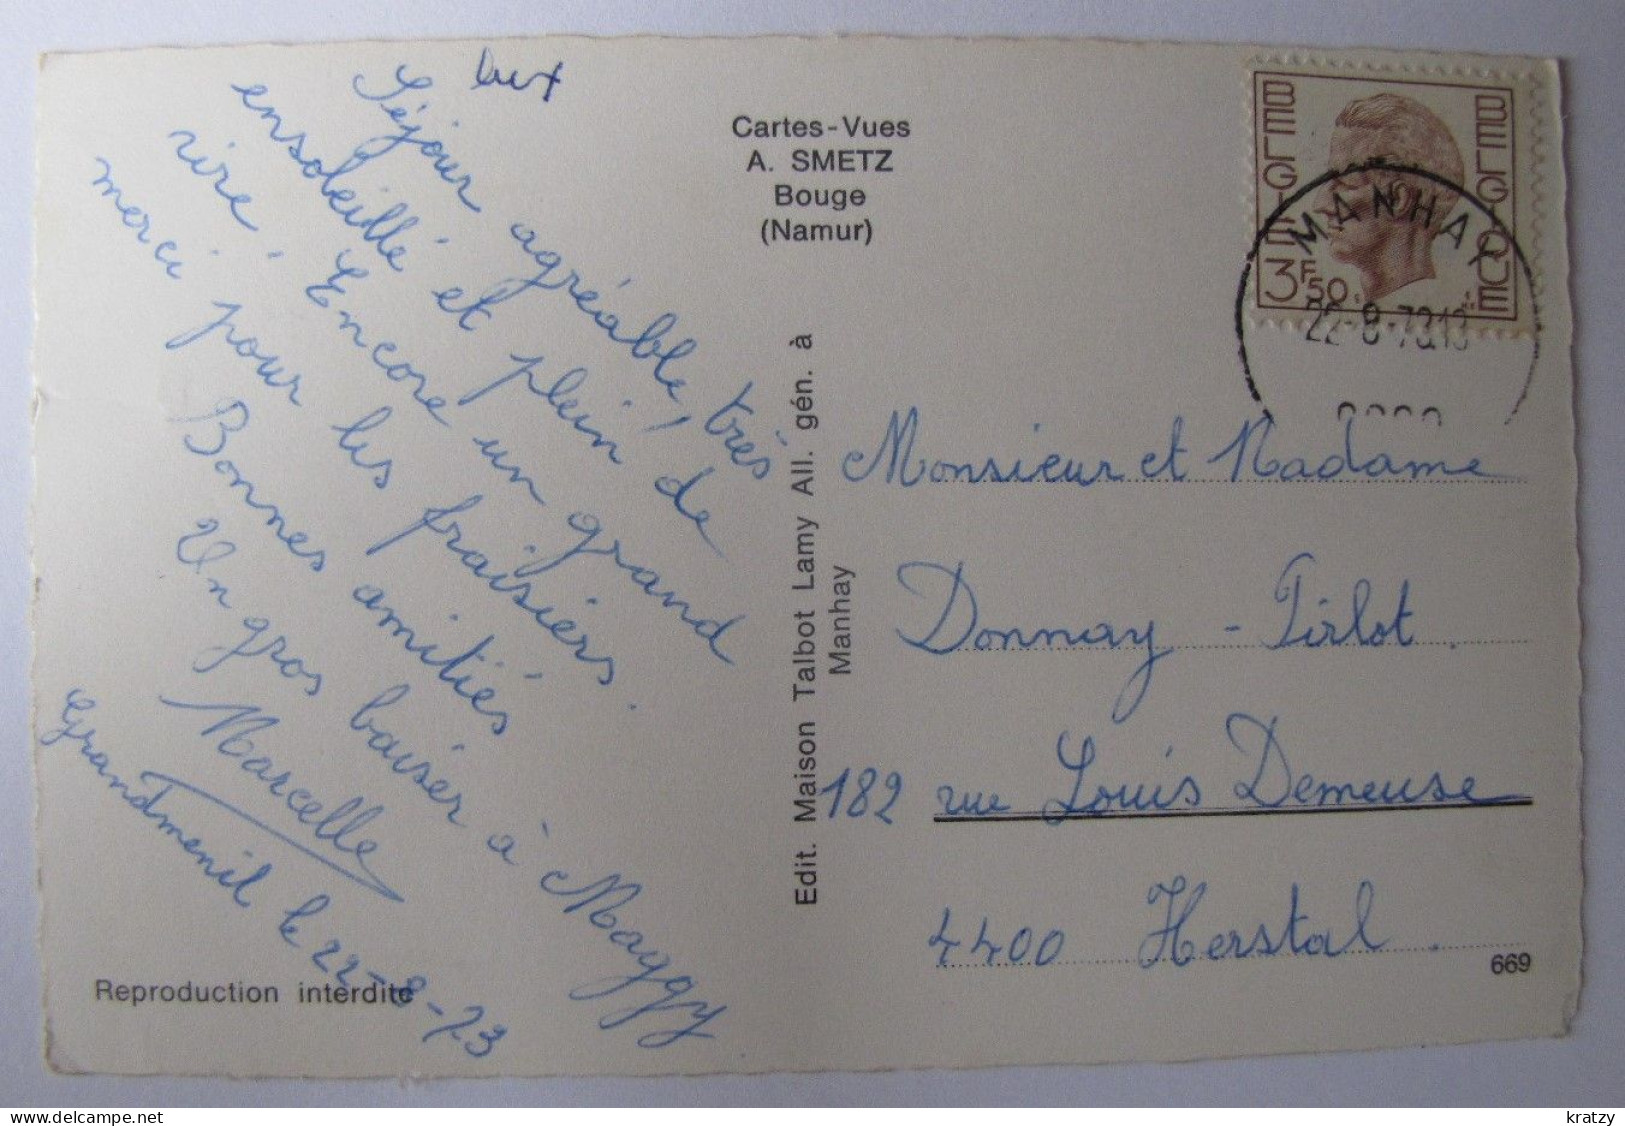 lux
Séjour agréable, très
ensoleillé et plein de
rire. Encore un grand
merci pour les fraisiers.
Bonnes amitiés
Un gros baiser à Maggy
Marcelle
Grandmenil le 22-8-73
Reproduction interdite
Cartes-Vues
A. SMETZ
Bouge
(Namur)
Edit. Maison Talbot Lamy All. gén. à
Manhay
BELGIE
BELGIQUE
3F50
MANHAY
22-8-73
Monsieur et Madame
Donnay - Pirlot.
182 rue Louis Demeuse
4400 Herstal.
669
kratzy